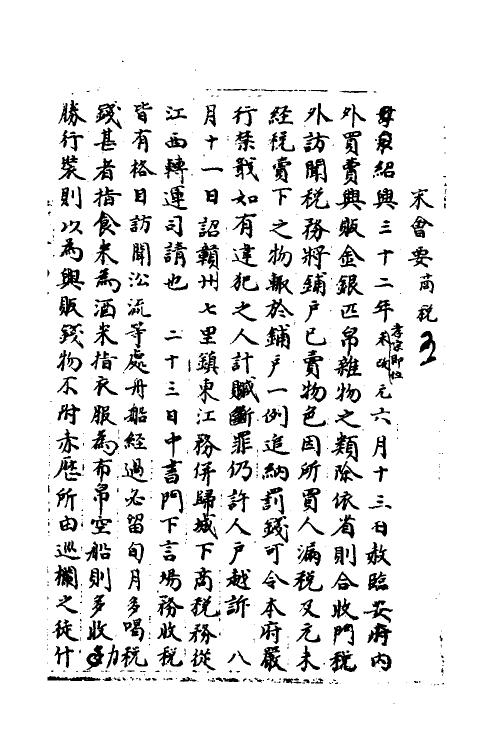 宋會要 商税
孝宗紹興三十二年孝宗即位未改元六月十三日赦臨安府内
外買賣興販金銀匹帛雜物之類除依省則合收門税
外訪聞税務將鋪户已賣物色因所買人漏税及元未
經税賣下之物輒於鋪户一例追納罰錢可令本府嚴
行禁戢如有違犯之人計贓斷罪仍許人户越訴 八
月十一日詔贛州七里鎮東江務併歸城下商税務從
江西轉運司請也 二十三日中書門下言場務收税
皆有格目訪聞沿流等處舟船經過必留旬月多喝税
錢甚者指食米為酒米指衣服為布帛空船則多收力
勝行裝則以為興販錢物不附赤歷所由巡欄之徒什